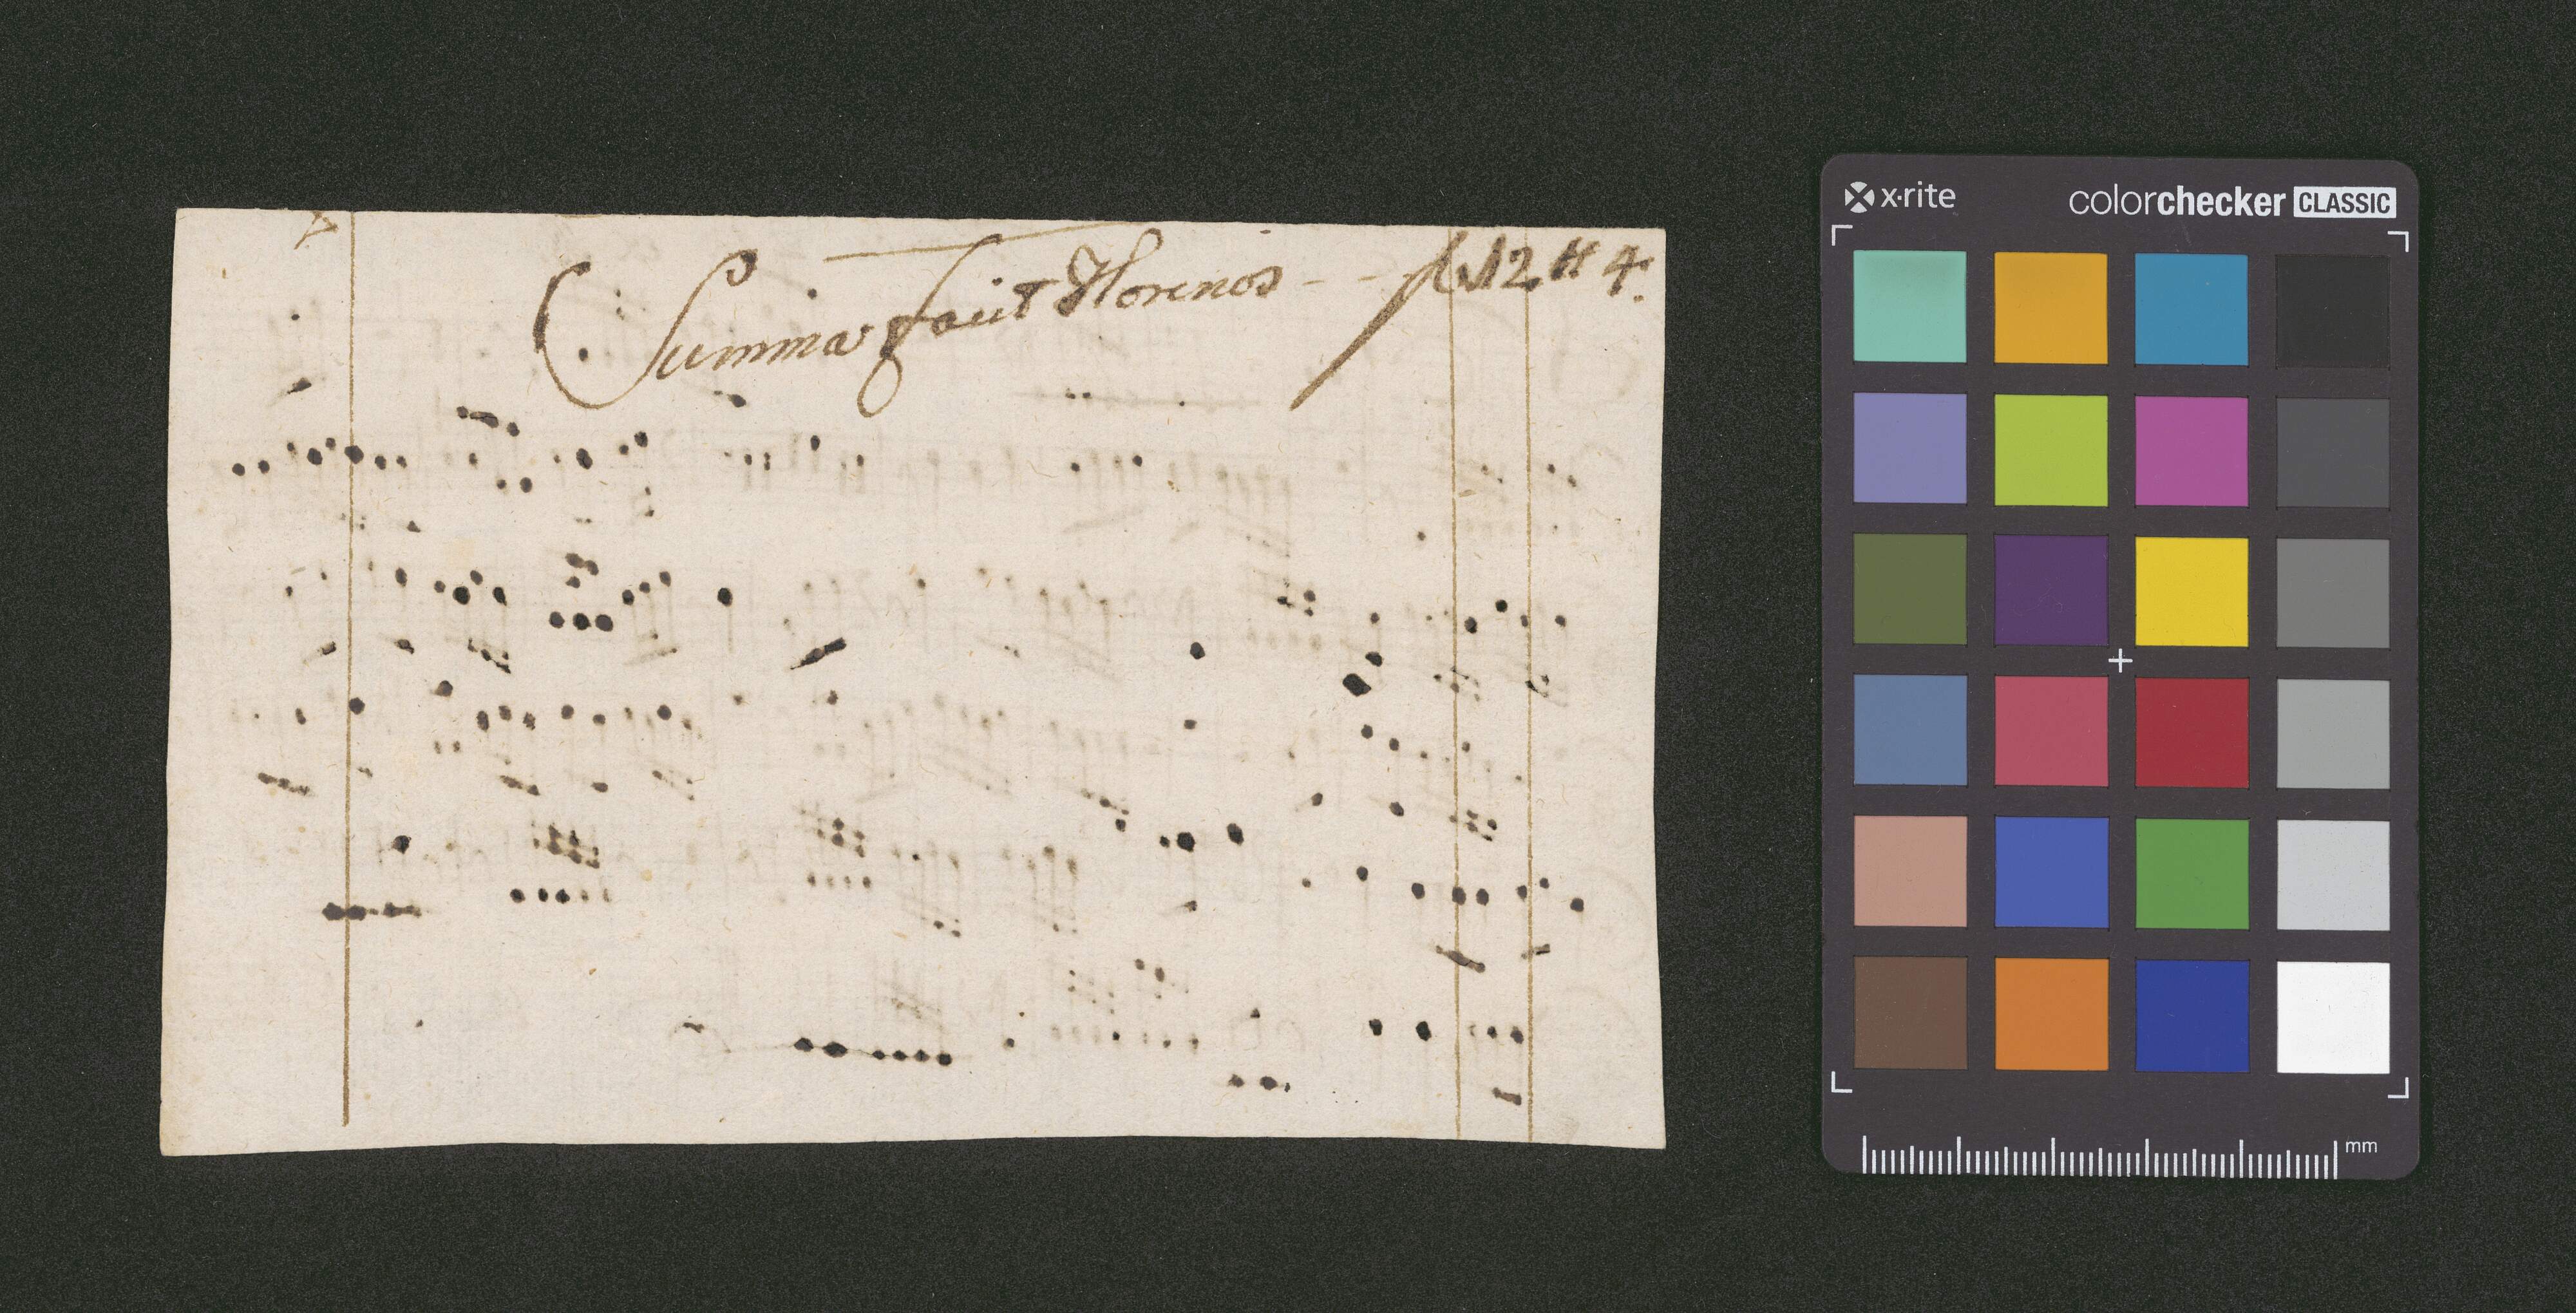 Summa facit Florenos - - fl 12 # 4.
x·rite
colorchecker CLASSIC
mm